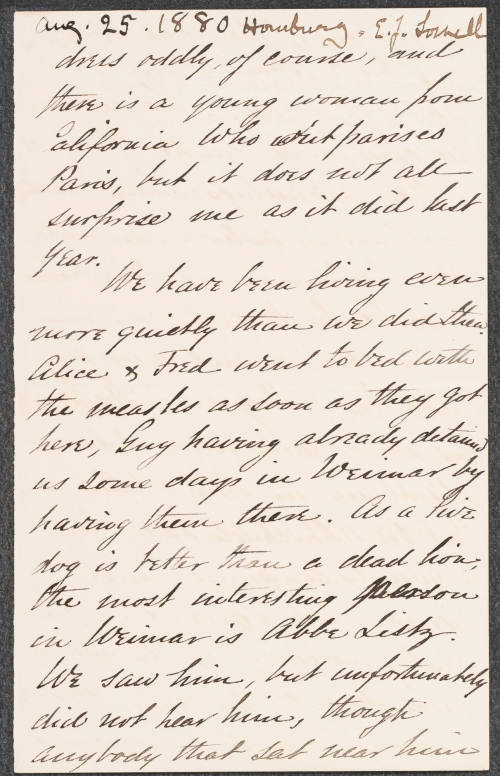 Aug. 25. 1880 Homburg. E.J. Lowell
dress oddly, of course, and
there is a young woman from
California who outparises
Paris, but it does not all
surprise me as it did last
year.
We have been living even
more quietly than we did then.
Alice & Fred went to bed with
the measles as soon as they got
here, Guy having already detained
us some days in Weimar by
having them there. As a live
dog is better than a dead lion,
the most interesting person
in Weimar is Abbe Liszt.
We saw him, but unfortunately
did not hear him, though
anybody that sat near him